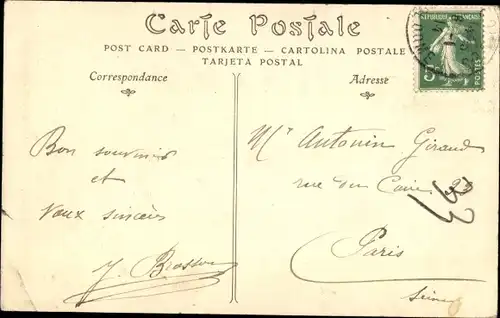 Carte Postale
POST CARD — POSTKARTE — CARTOLINA POSTALE
TARJETA POSTAL
Correspondance
Adresse
REPUBLIQUE FRANÇAISE
5
POSTES
Bon souvenir
et
Vœux sincères
J. Brosson
Mr Antonin Giraud
rue du Caire 23
33
Paris
Seine